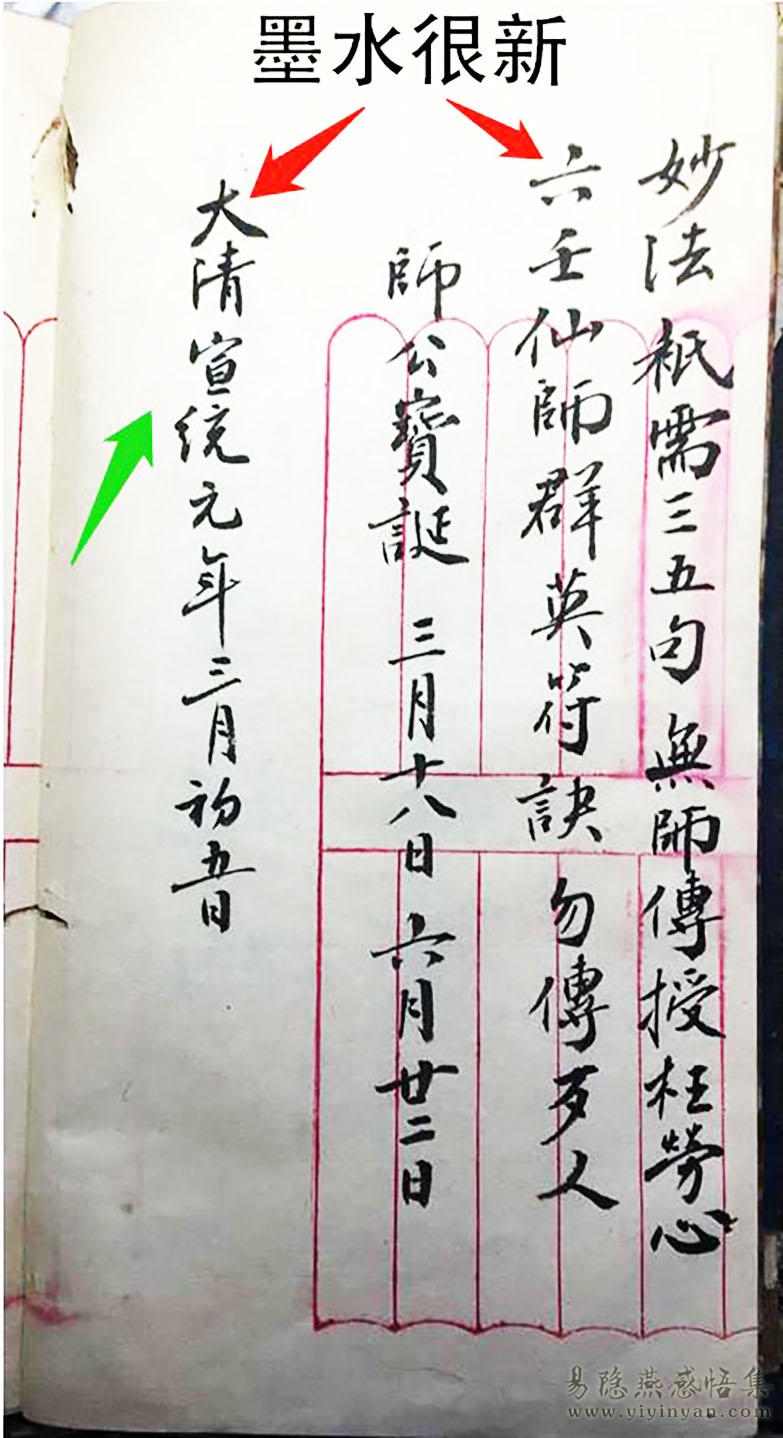 墨水很新
妙法衹需三五句 無師傳授枉勞心
六壬仙師群英符訣 勿傳歹人
師公寶誕 三月十八日 六月廿二日
大清宣統元年三月初五日
易隐燕感悟集
www.yiyinyan.com